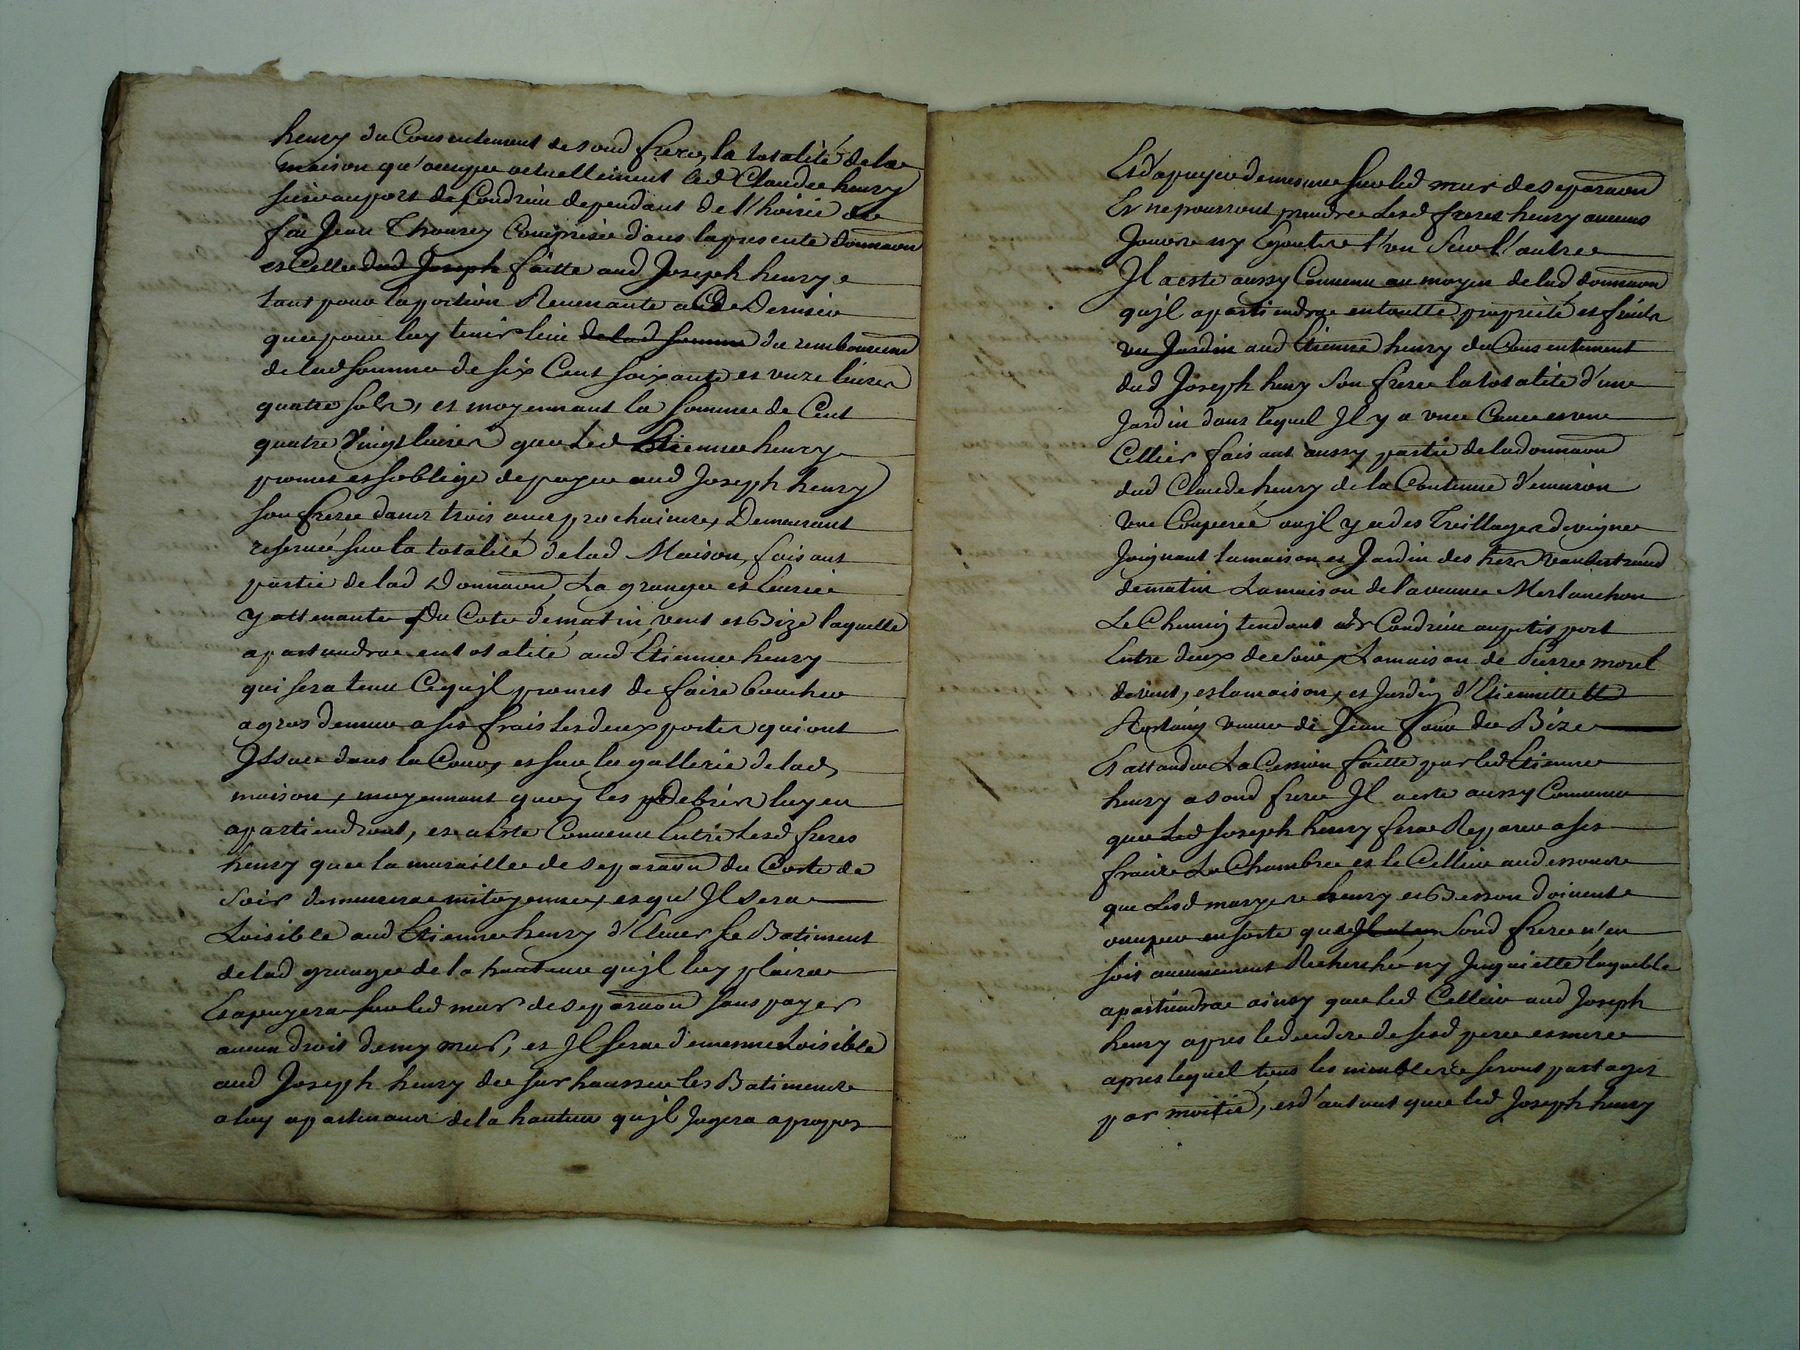 henry du Consentement de sond frere, la totalité de la
maison qu'occupe actuellement led Claude henry
scise au port de Condrieu dependant de l'hoirie de
feu Jean Thourey Comprise dans la presente donnaon
et Celle dud Joseph faitte aud Joseph henry
tant pour la portion Revenante a Ce Dernier
que pour luy tenir lieu de lad somme du remboursemt
de lad somme de six Cent soixante et onze livres
quatre sols, et moyennant la somme de Cent
quatre Vingt livres que Led Etienne henry
promet et s'oblige de payer aud Joseph henry
son frere dans trois ans prochains, Demeurant
reservée sur la totalité de lad Maison, faisant
partie de lad Donnaon, La grange et Ecurie
y attenante Du Coté de matin, vent et Bize laquelle
apartiendra en totalité aud Etienne henry
qui sera tenu Ce qu'jl promet de faire boucher
a gros de mur a ses frais les deux portes qui ont
Jssue dans la Cour, et sur la gallerie de lad
maison, moyennant quoy les debris luy en
apartiendront, et a esté Convenu Entre Lesd freres
henry que la muraille de separaon du Costé de
soir demeurera mitoyenne, et qu'Jl sera
Loisible aud Etienne henry d'Elever le Batiment
de lad grange de la hauteur qu'jl luy plaira
Et apuyera sur led mur de separaon sans payer
aucun droit de my mur, et Jl sera de mesme Loisible
aud Joseph henry de sur hausser les Batimens
a luy apartenans de la hauteur qu'jl Jugera a propos
Et d'apuyer de mesme sur led mur de separaon
Et ne pourront prendre Lesd freres henry aucuns
Jours ny Egouts l'un sur l'autre
Jl a esté aussy Convenu au moyen de lad donnaon
qu'jl apartiendra en toutte proprieté et fonds
un Jardin aud Etienne henry du Consentement
dud Joseph henry son frere la totalité d'un
Jardin dans lequel Jl y a une Cave et un
Cellier faisant aussy partie de lad donnaon
dud Claude henry de la Contenue d'environ
une Couperée ou jl y a des Treillages de vigne
Joignant la maison et Jardin des hers
de matin La maison de la veuve Merlanchon
Le Chemin tendant de Condrieu au petit port
Entre deux de soir, La maison de Pierre morel
de vent, et la maison, et Jardin d'Etiennette
veuve de Jean faure de Bize
Et attandu La Cession faitte par led Etienne
henry a sond frere Jl a esté aussy Convenu
que Led Joseph henry fera Reparer a ses
frais La Chambre et le Cellier au dessous
que Lesd maryés henry et Besson doivent
occuper en sorte que sond frere n'en
soit aucunement Recherché ny Jnquietté laquelle
apartiendra ainsy que led Cellier aud Joseph
henry apres le deceds de sesd pere et mere
apres lequel tous les meubles seront partagés
par moitié, et d'autant que led Joseph henry